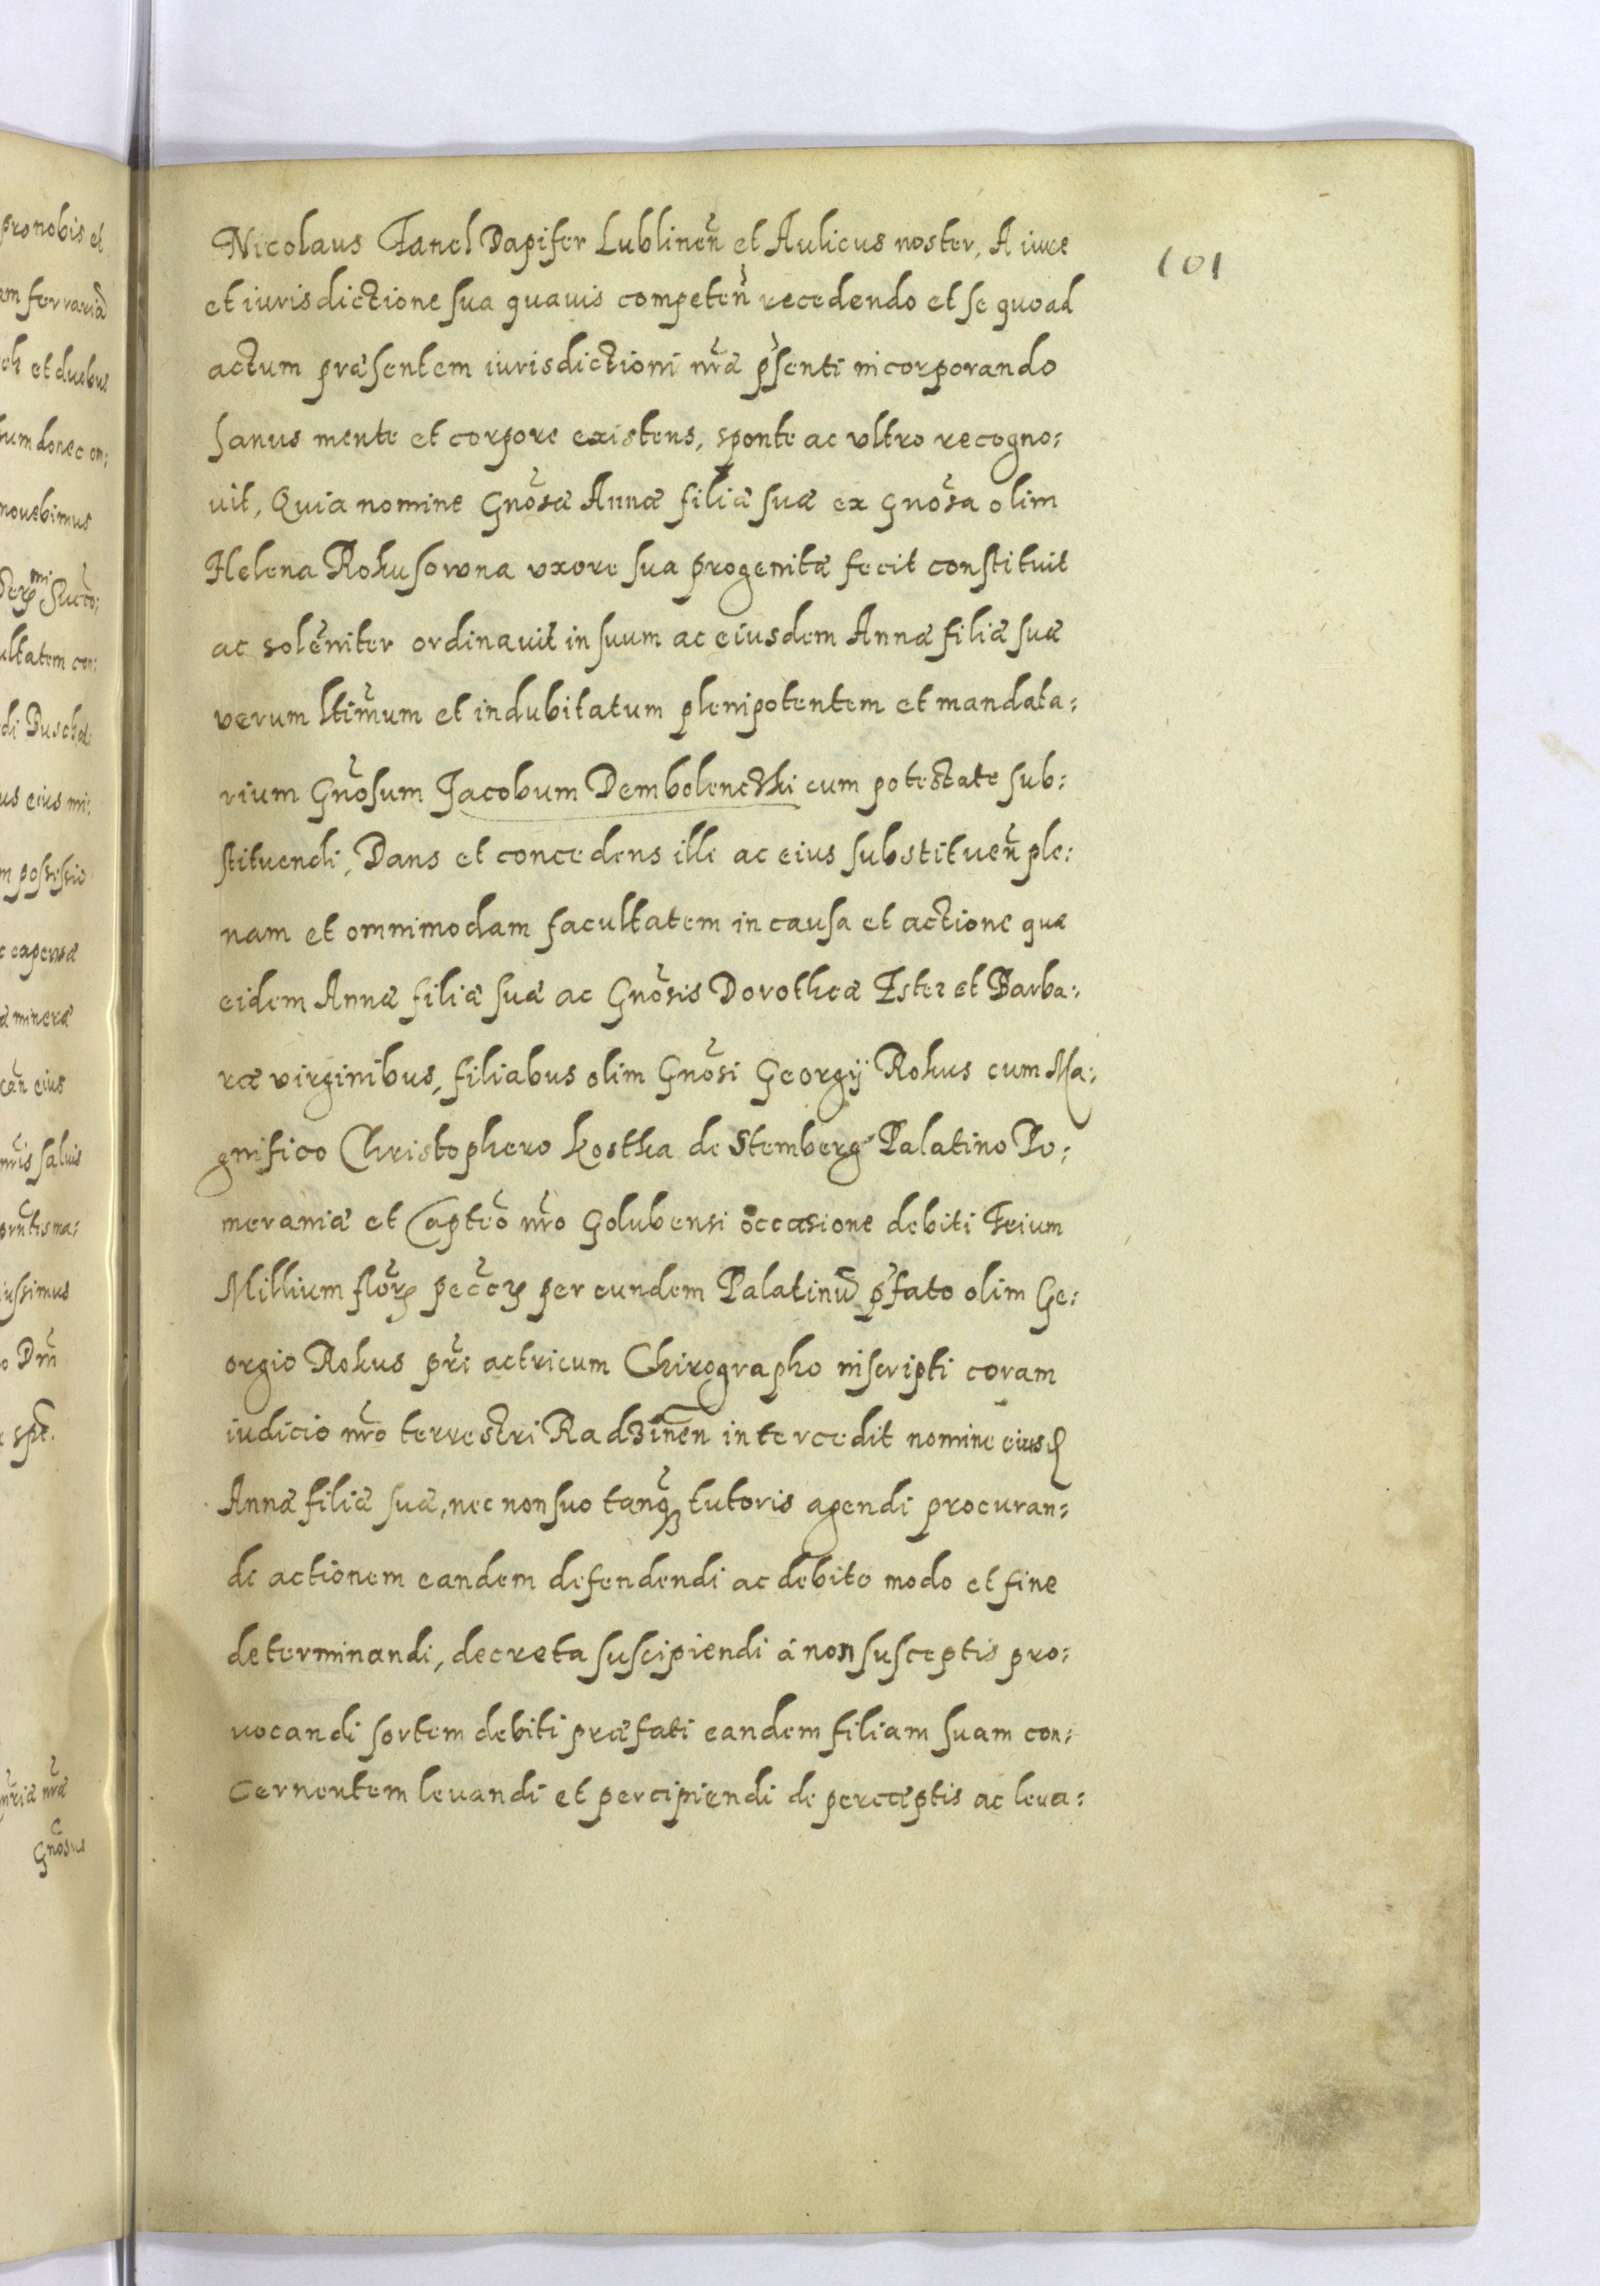 101
Nicolaus Fanel Dapifer Lublineñ et Aulicus noster, A iure
et iurisdictione sua quauis competeñ recedendo et se quoad
actum præsentem iurisdictioni nr̃æ p̃senti incorporando
sanus mente et corpore existens, sponte ac vltro recogno:
uit, Quia nomine Gñosæ Annæ filiæ suæ ex Gñosa olim
Helena Rokusowna vxore sua progenitæ fecit constituit
ac solẽniter ordinauit in suum ac eiusdem Annæ filiæ suæ
verum ltim̃um et indubitatum plenipotentem et mandata:
rium Gñosum Jacobum Dembolencʒki cum potestate sub:
stituendi, Dans et concedens illi ac eius substitueñ ple:
nam et omnimodam facultatem in causa et actione quæ
eidem Annæ filiæ suæ ac Gñosis Dorotheæ Ester et Barba:
ræ virginibus, filiabus olim Gñosi Georgÿ Rokus cum Ma:
gnifico Christophero Kostka de Stemberg Palatino Po:
meraniæ et Capteo nr̃o Golubensi occasione debiti Trium
Millium flor̃ꝝ pec̃cꝝ per eundem Palatinũ p̃fato olim Ge:
orgio Rokus pr̃i actricum Chirographo inscripti coram
iudicio nr̃o terrestri Radʒineñ intercedit nomine eiusd
Annæ filiæ suæ, nec non suo tanq̃ʒ tutoris agendi procuran:
di actionem eandem defendendi ac debito modo et fine
determinandi, decreta suscipiendi á non susceptis pro:
uocandi sortem debiti præfati eandem filiam suam con:
cernentem leuandi et percipiendi de perceptis ac leua: